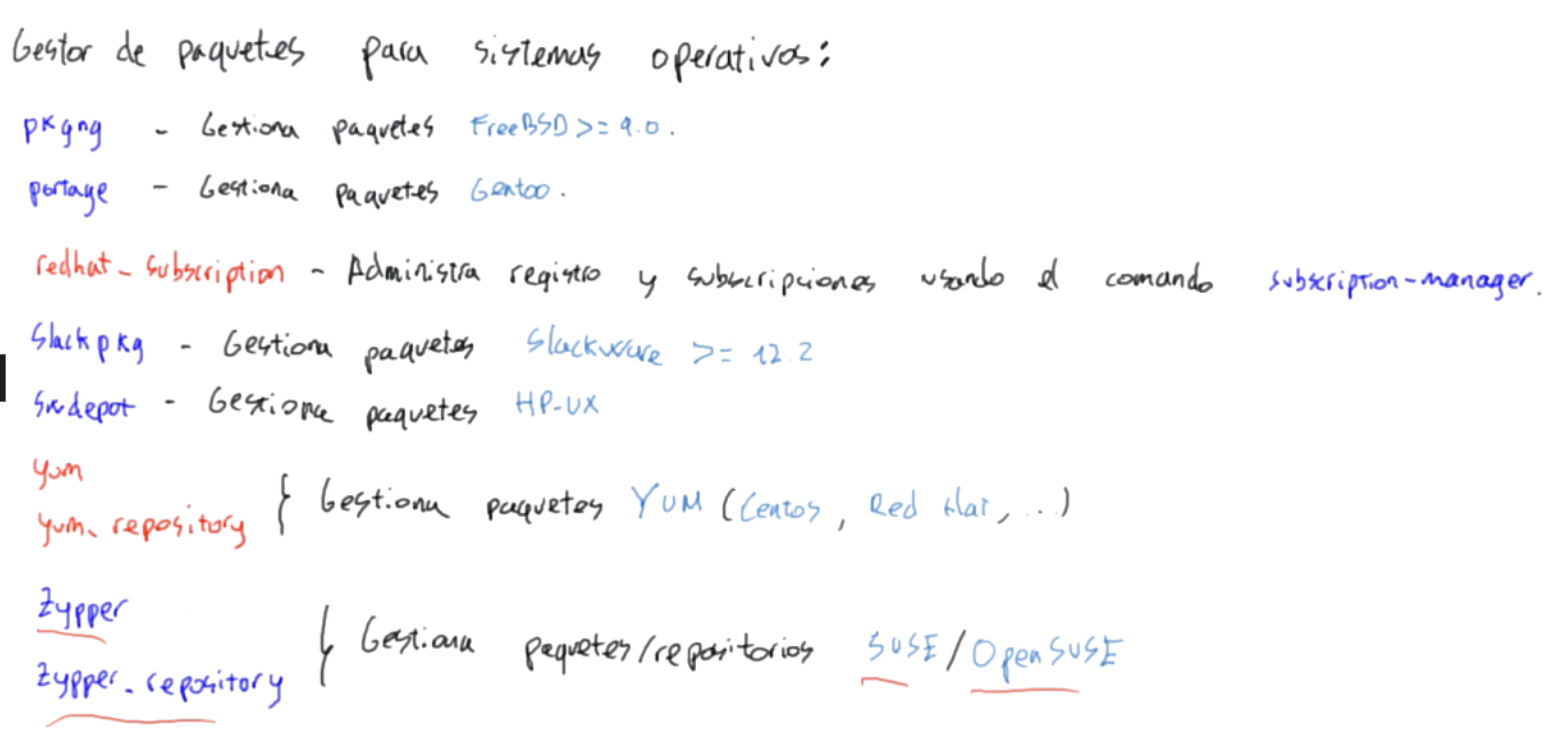 Gestor de paquetes para sistemas operativos:
pkgng - Gestiona paquetes FreeBSD >= 9.0.
portage - Gestiona paquetes Gentoo.
redhat_subscription - Administra registro y subscripciones usando el comando subscription-manager.
Slackpkg - Gestiona paquetes Slackware >= 12.2
Swdepot - Gestiona paquetes HP-UX
yum
yum_repository } Gestiona paquetes YUM (Centos, Red Hat, ...)
Zypper
Zypper_repository } Gestiona paquetes/repositorios SUSE/OpenSUSE